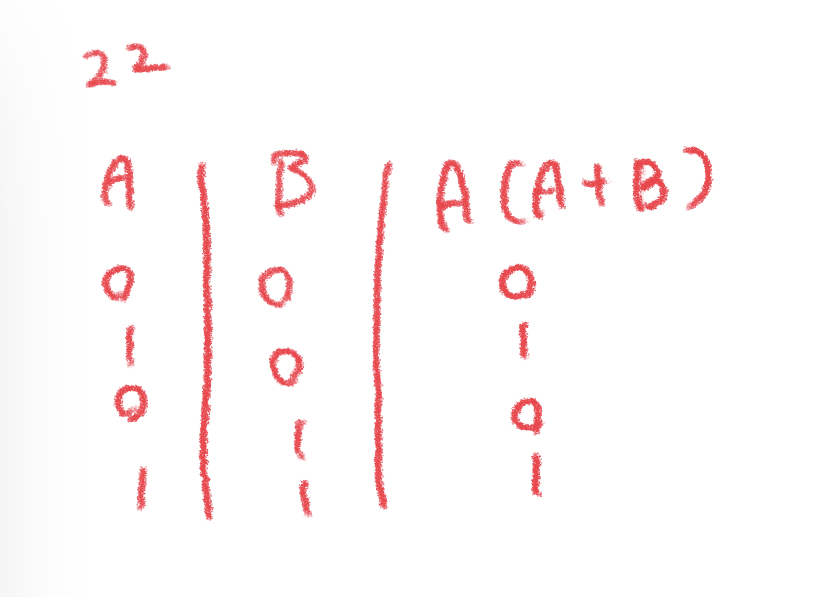 22
A | B | A(A+B)
0 | 0 | 0
1 | 0 | 1
0 | 1 | 0
1 | 1 | 1